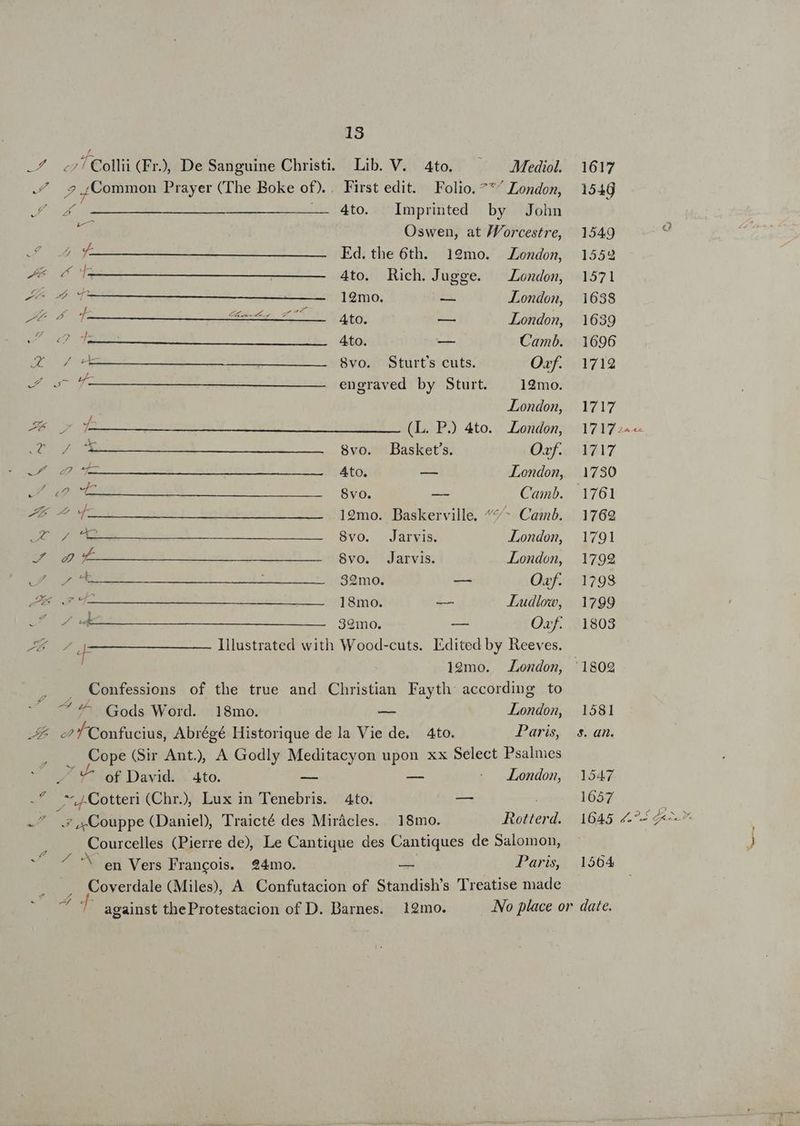 13
Collii (Fr.), De Sanguine Christi. Lib. V. 4to. Mediol. 1617
Common Prayer (The Boke of). First edit. Folio. London, 1549
——— 4to. Imprinted by John
Oswen, at Worcestre, 1549
——— Ed. the 6th. 12mo. London, 1552
——— 4to. Rich. Jugge. London, 1571
——— 12mo. — London, 1638
——— 4to. — London, 1639
——— 4to. — Camb. 1696
——— 8vo. Sturt's cuts. Oxf. 1712
——— engraved by Sturt. 12mo.
London, 1717
——— (L. P.) 4to. London, 1717
——— 8vo. Basket's. Oxf. 1717
——— 4to. — London, 1730
——— 8vo. — Camb. 1761
——— 12mo. Baskerville. Camb. 1762
——— 8vo. Jarvis. London, 1791
——— 8vo. Jarvis. London, 1792
——— 32mo. — Oxf. 1798
——— 18mo. — Ludlow, 1799
——— 32mo. — Oxf. 1803
——— Illustrated with Wood-cuts. Edited by Reeves.
12mo. London, 1802
Confessions of the true and Christian Fayth according to
Gods Word. 18mo. — London, 1581
Confucius, Abrégé Historique de la Vie de. 4to. Paris, s. an.
Cope (Sir Ant.), A Godly Meditacyon upon xx Select Psalmes
of David. 4to. — — London, 1547
Cotteri (Chr.), Lux in Tenebris. 4to. — 1657
Couppe (Daniel), Traicté des Miràcles. 18mo. Rotterd. 1645
Courcelles (Pierre de), Le Cantique des Cantiques de Salomon,
en Vers François. 24mo. — Paris, 1564
Coverdale (Miles), A Confutacion of Standish's Treatise made
against theProtestacion of D. Barnes. 12mo. No place or date.